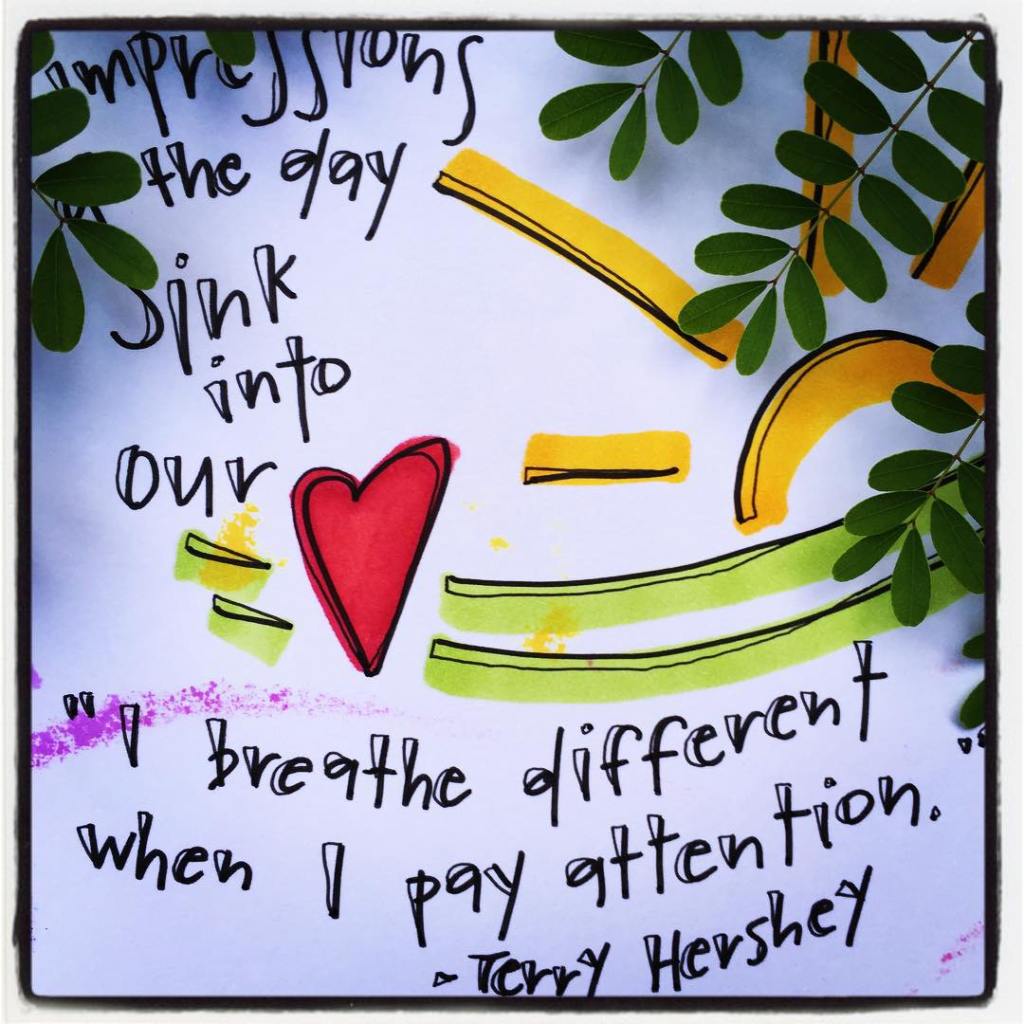 impressions
the day
sink
into
our
"I breathe different
when I pay attention."
- Terry Hershey